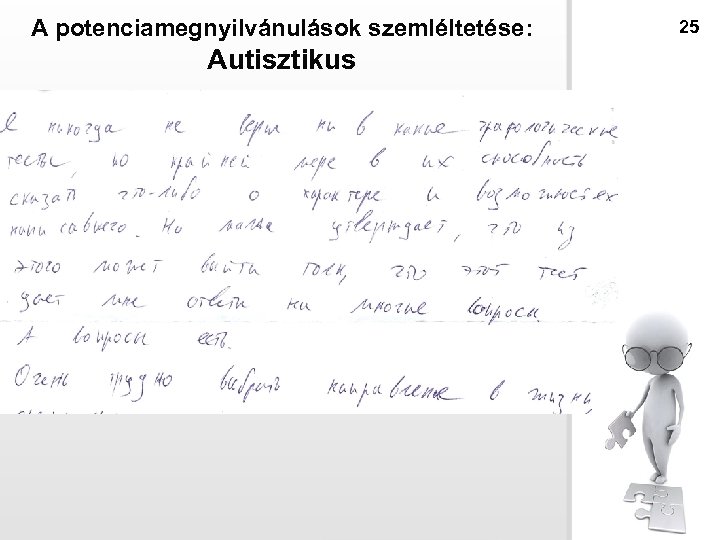 A potenciamegnyilvánulások szemléltetése:
Autisztikus
25
Я никогда не верил ни в какие графологические
тесты, по крайней мере в их способность
сказать что-либо о характере и возможностях
написавшего. Но мама утверждает, что из
этого может выйти толк, что этот тест
даст мне ответы на многие вопросы.
А вопросы есть.
Очень трудно выбрать направление в жизни,